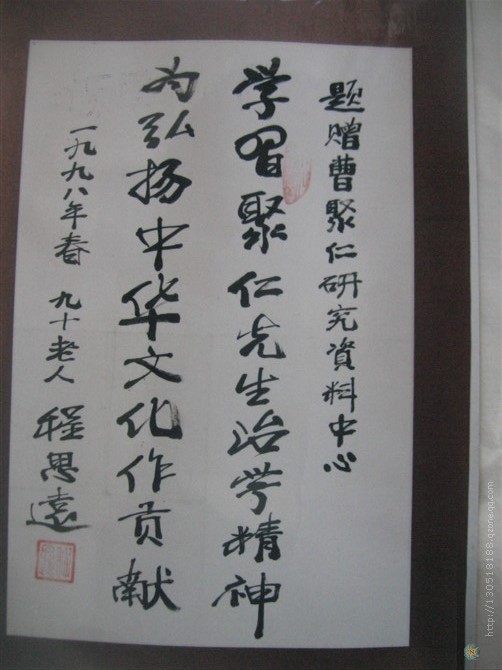 题赠曹聚仁研究資料中心
学習聚仁先生治学精神
为弘扬中华文化作贡献
一九九八年春 九十老人
程思遠
http://130518188.qzone.qq.com